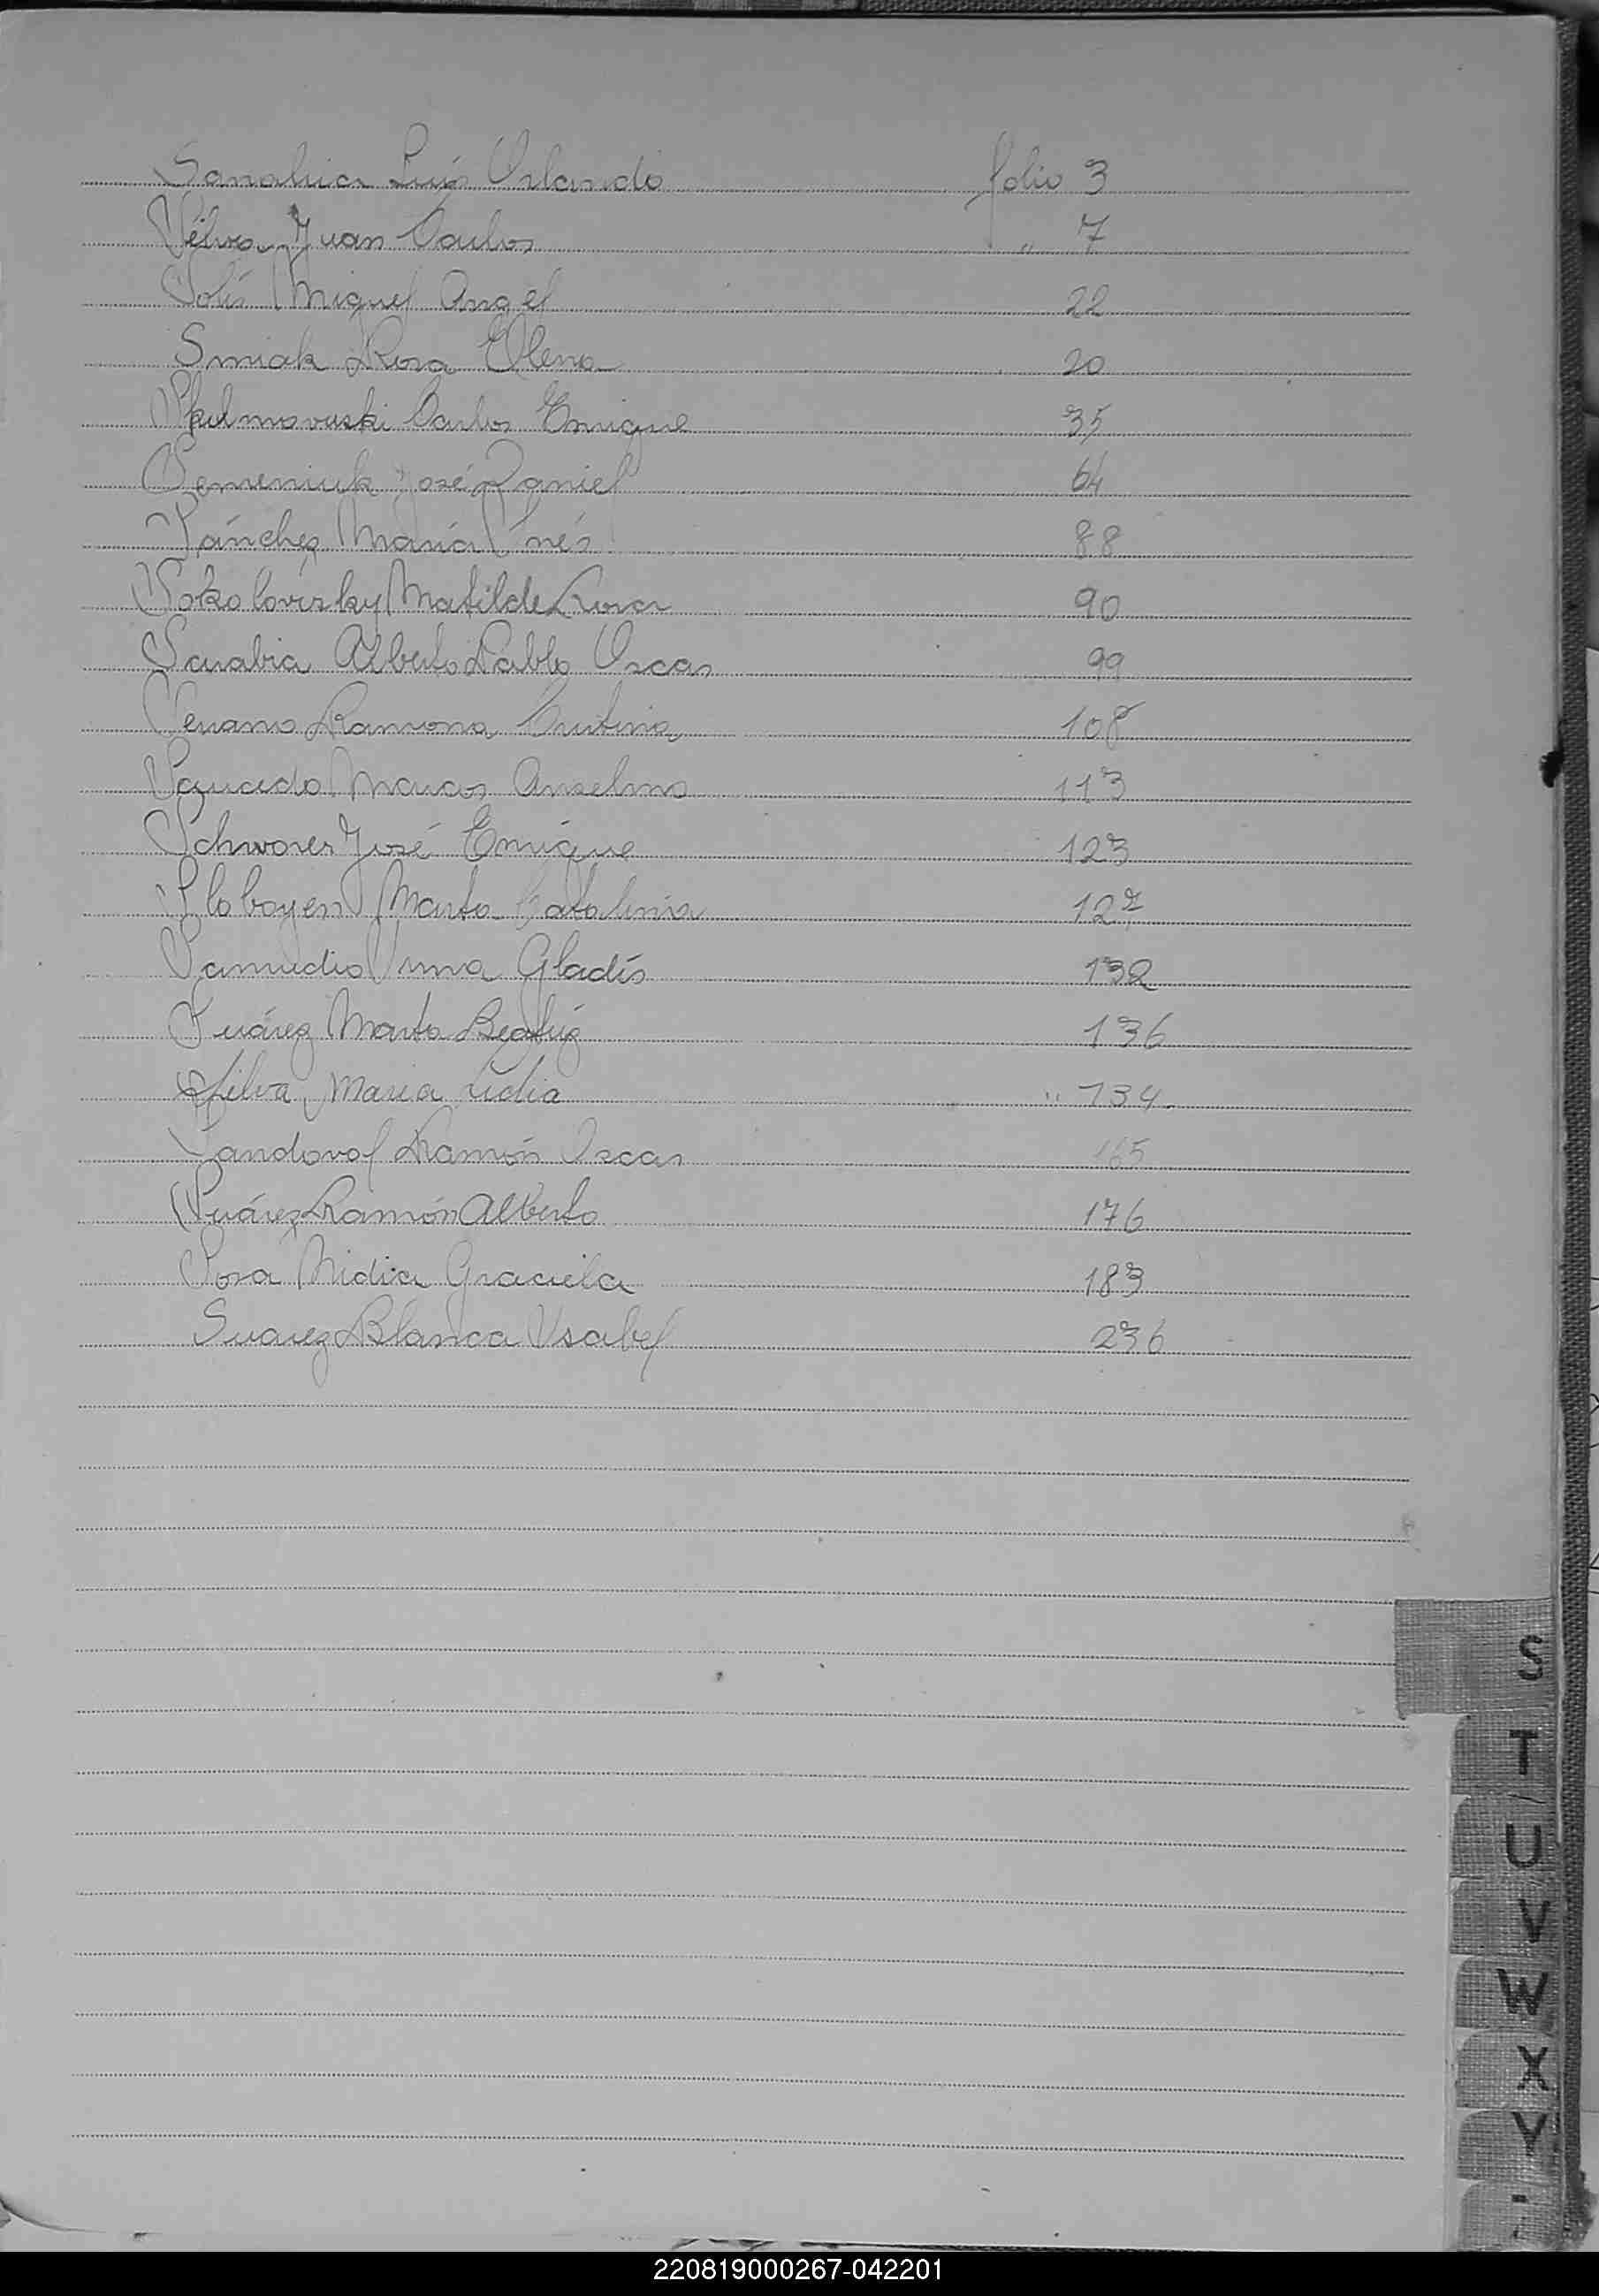 Sanabria Luis Orlando folio 3
Silva Juan Carlos " 7
Solís Miguel Angel 22
Smiak Rosa Elena 20
Carlos Enrique 35
Semeniuk José Daniel 64
Sánchez María Inés 88
Sokolovisky Matilde Rosa 90
Sanabia Alberto Pablo Oscar 99
Serano Ramona Cristina 108
Saucedo Marcos Anselmo 113
José Enrique 123
Slobayen Marta Catalina 127
Samudio Irma Gladis 132
Suárez Marta Beatriz 136
Silva Maria Lidia " 134
Sandoval Ramón Oscar 165
Suárez Ramón Alberto 176
Sosa Nidia Graciela 183
Suarez Blanca Ysabel 236
S
T
U
V
W
X
Y
220819000267-042201